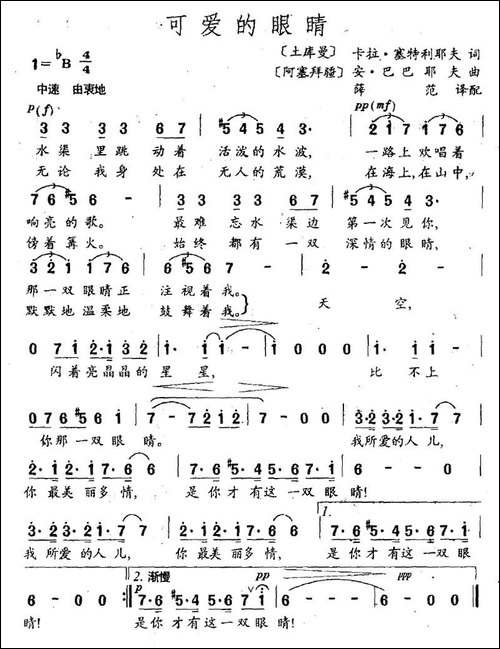 可爱的眼睛
〔土库曼〕 卡拉·塞特利耶夫 词
1=♭B 4/4 〔阿塞拜疆〕 安·巴巴耶夫 曲
中速 由衷地 薛 范 译配
p(f) pp(mf)
3 3 3 3 6 7 | #5 4 5 4 3· | 2 1 7 1 7 6
水渠里跳动着 活泼的水波, 一路上欢唱着
无论我身处在 无人的荒漠, 在海上,在山中,
7 6 #5 6 - | 3 3 3 3 6 7 | #5 4 5 4 3·
响亮的歌。 最难忘水渠边 第一次见你,
傍着篝火。 始终都有一双 深情的眼睛,
3 2 1 1 7 6 | 6 #5 6 - | 2 - 2 -
那一双眼睛正 注视着我。
默默地温柔地 鼓舞着我。 天 空,
0 7 1 2·1 3 2 | 1· 1 1 - | 1 0 0 0 | 2 - 2· 1
闪着亮晶晶的星 星, 比 不上
0 7 6 #5 6 1 | 7 - 7 2 1 2 | 7 - 0 0 | 3·2 3·2 1·7 7
你那一双眼 睛。 我所爱的人儿,
2·1 2·1 7·6 6 | 7·6 #5·4 5·6 7·1 | 6 - 0 0
你最美丽多情, 是你才有这一双眼睛!
1.
3·2 3·2 1·7 7 | 2·1 2·1 7·6 6 | 7·6 #5·4 5·6 7·1
我所爱的人儿, 你最美丽多情, 是你才有这一双眼
2. 渐慢 pp ppp
p
6 - 0 0 :‖ 7·6 #5·4 5·6 7 1 | 6 - - - | 6 - 0 0 ‖
睛! 是你才有这一双眼睛!